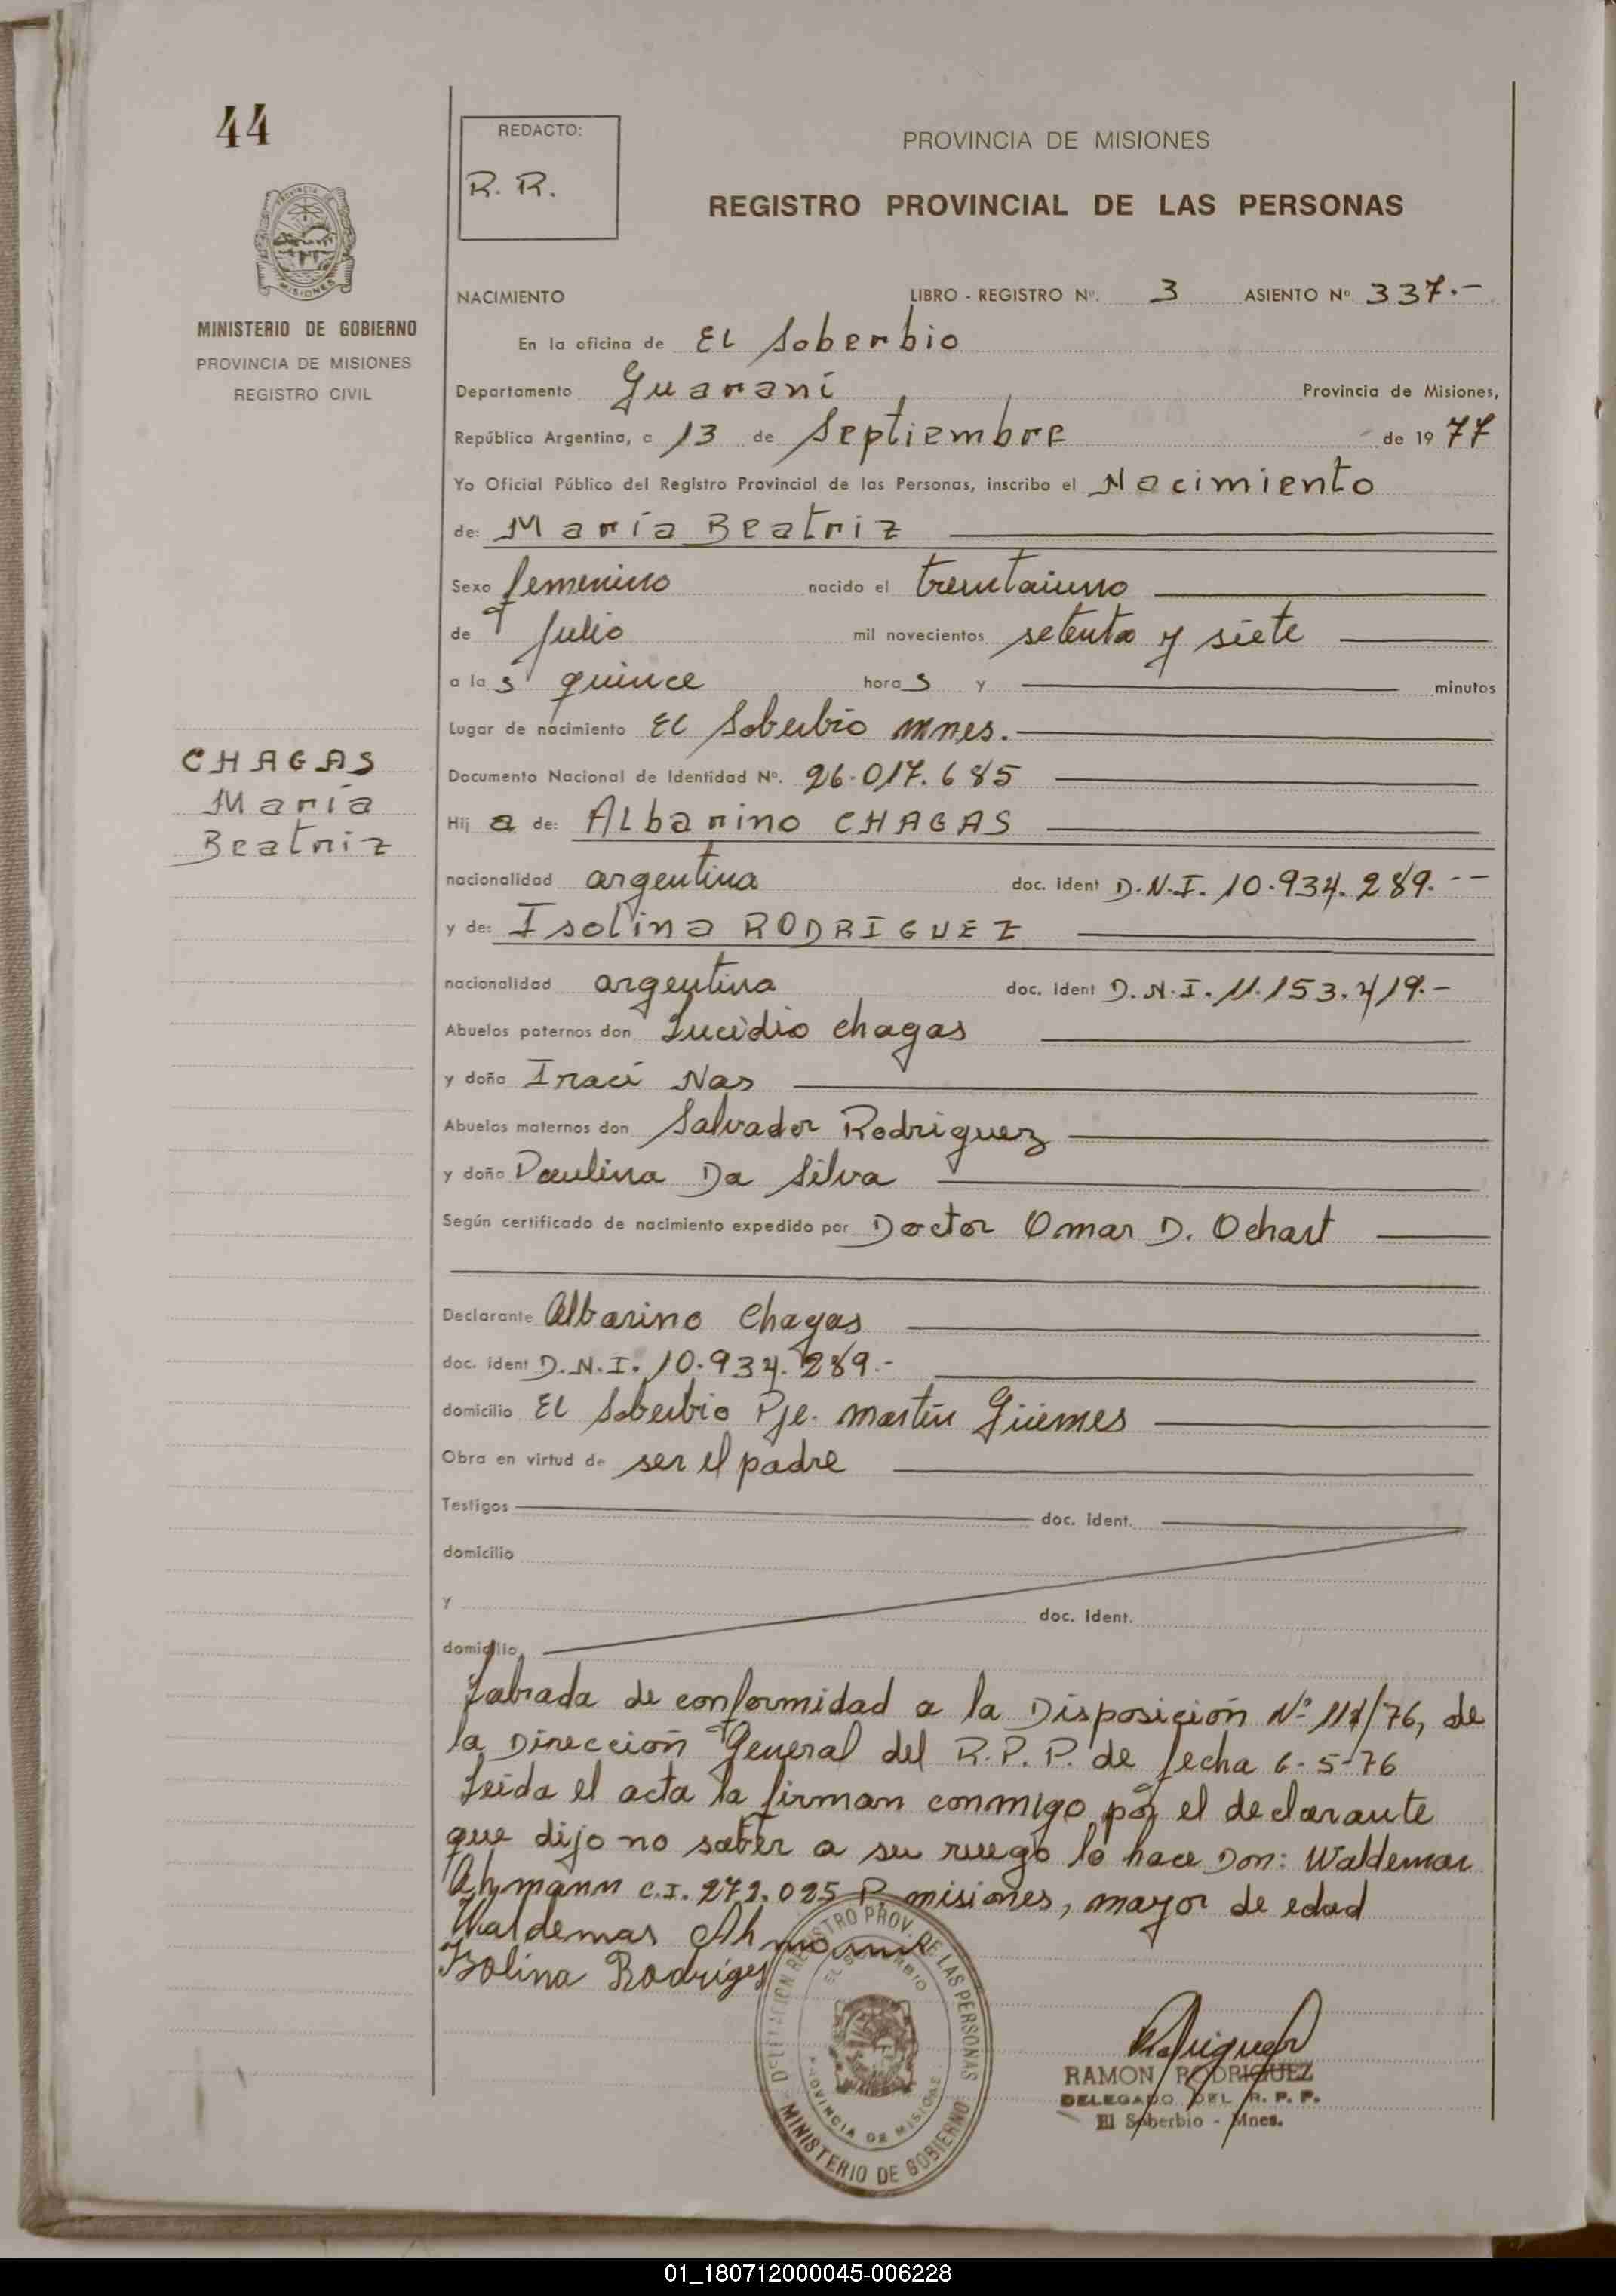 44
REDACTO:
R. R.
PROVINCIA DE MISIONES
REGISTRO PROVINCIAL DE LAS PERSONAS
MINISTERIO DE GOBIERNO
PROVINCIA DE MISIONES
REGISTRO CIVIL
NACIMIENTO LIBRO - REGISTRO Nº. 3 ASIENTO Nº 337.-
En la oficina de El Soberbio
Departamento Guaraní Provincia de Misiones,
República Argentina, a 13 de Septiembre de 1977
Yo Oficial Público del Registro Provincial de las Personas, inscribo el Nacimiento
de: María Beatriz
Sexo femenino nacido el treintaiuno
de Julio mil novecientos setenta y siete
a las quince horas y minutos
Lugar de nacimiento El Soberbio mnes.
CHAGAS
María
Beatriz
Documento Nacional de Identidad Nº. 26.017.685
Hija de: Albarino CHAGAS
nacionalidad argentina doc. ident D.N.I. 10.934.289.--
y de: Isolina RODRIGUEZ
nacionalidad argentina doc. ident D.N.I. 11.153.419.-
Abuelos paternos don Lucídio Chagas
y doña Iraci Nas
Abuelos maternos don Salvador Rodriguez
y doña Paulina Da Silva
Según certificado de nacimiento expedido por Doctor Omar D. Ochart
Declarante Albarino Chagas
doc. ident D.N.I. 10.934.289.-
domicilio El Soberbio Pje. Martín Güemes
Obra en virtud de ser el padre
Testigos doc. ident.
domicilio
y doc. ident.
domicilio
Labrada de conformidad a la Disposición Nº /76, de
la Dirección General del R.P.P. de fecha 6-5-76
Leída el acta la firman conmigo por el declarante
que dijo no saber a su ruego lo hace Don: Waldemar
Ahmann C.I. 272.025 P. misiones, mayor de edad
Waldemar Ahmann
Isolina Rodriges
DELEGACION REGISTRO PROV. DE LAS PERSONAS
EL SOBERBIO
PROVINCIA DE MISIONES
MINISTERIO DE GOBIERNO
RAMON RODRIGUEZ
DELEGADO DEL R. P. P.
El Soberbio - Mnes.
01_180712000045-006228